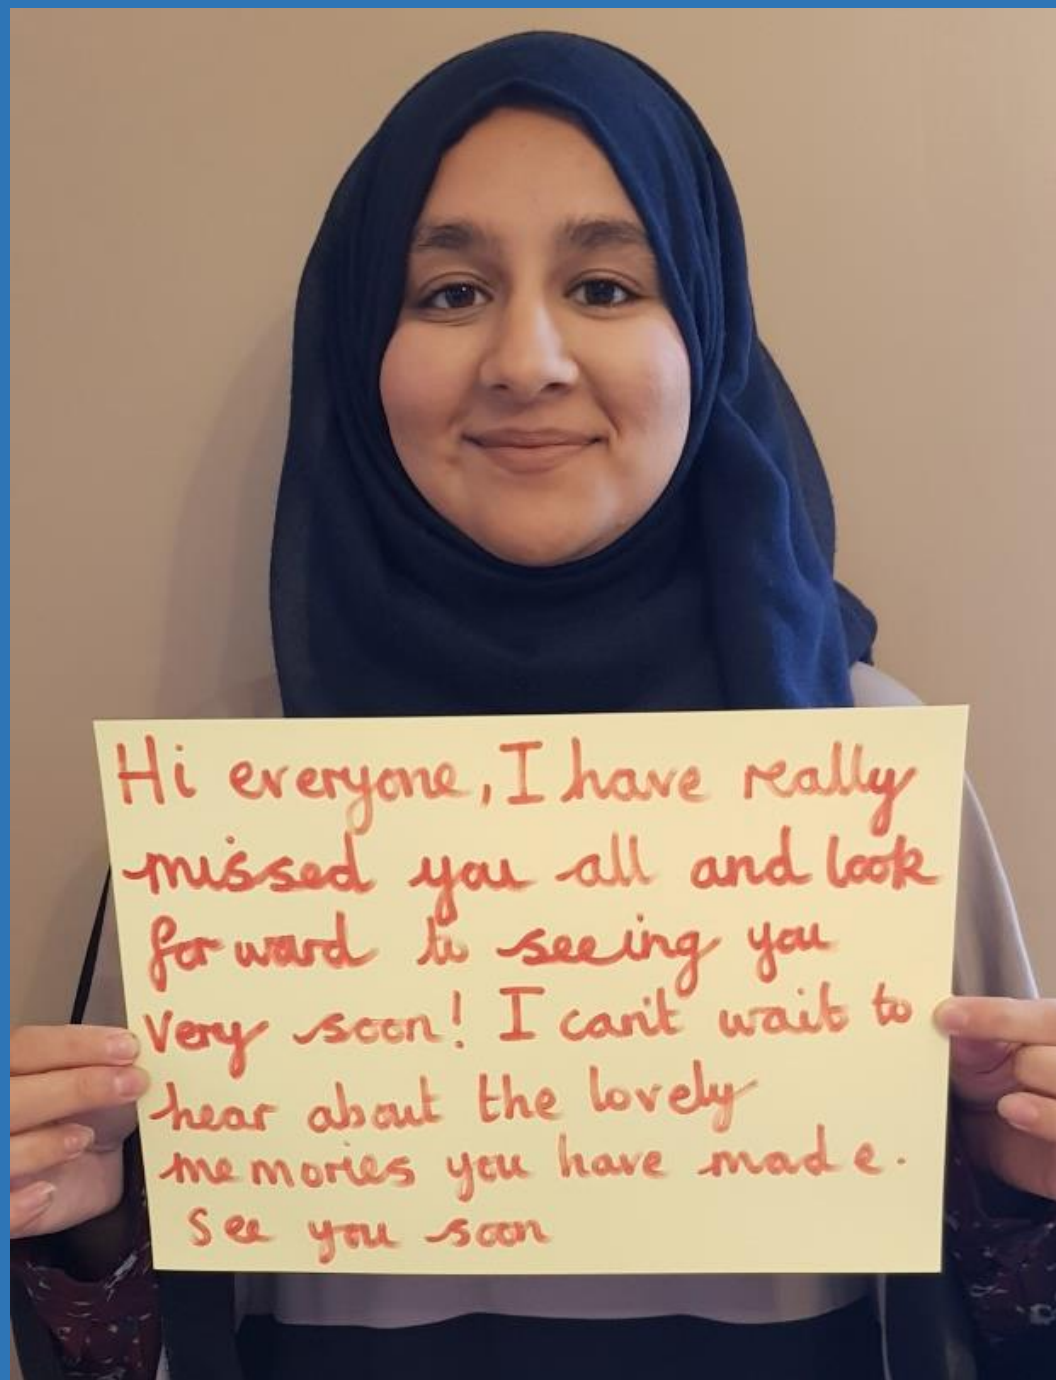 Hi everyone, I have really
missed you all and look
forward to seeing you
very soon! I can't wait to
hear about the lovely
memories you have made.
See you soon